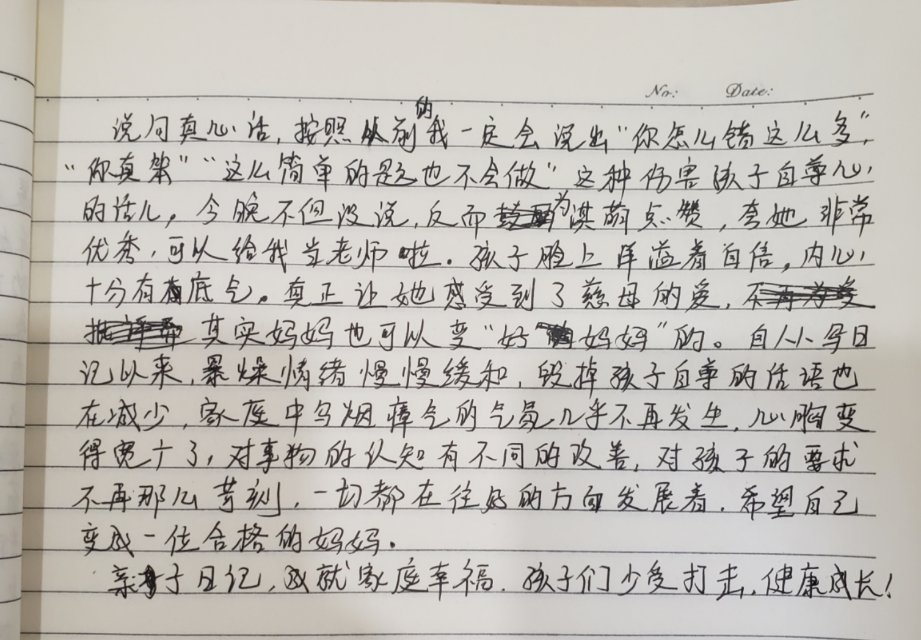 No: Date:
说句真心话，按照从前的我一定会说出“你怎么错这么多”，
“你真笨”“这么简单的题也不会做”这种伤害孩子自尊心
的话儿。今晚不但没说，反而为淇萌点赞，夸她非常
优秀，可以给我当老师啦。孩子脸上洋溢着自信，内心
十分有底气。真正让她感受到了慈母的爱，
其实妈妈也可以变“好妈妈”的。自从写日
记以来，暴燥情绪慢慢缓和，毁掉孩子自尊的话语也
在减少，家庭中乌烟瘴气的气氛几乎不再发生，心胸变
得宽广了，对事物的认知有不同的改善，对孩子的要求
不再那么苛刻，一切都在往好的方向发展着，希望自己
变成一位合格的妈妈。
亲子日记，成就家庭幸福，孩子们少受打击，健康成长！